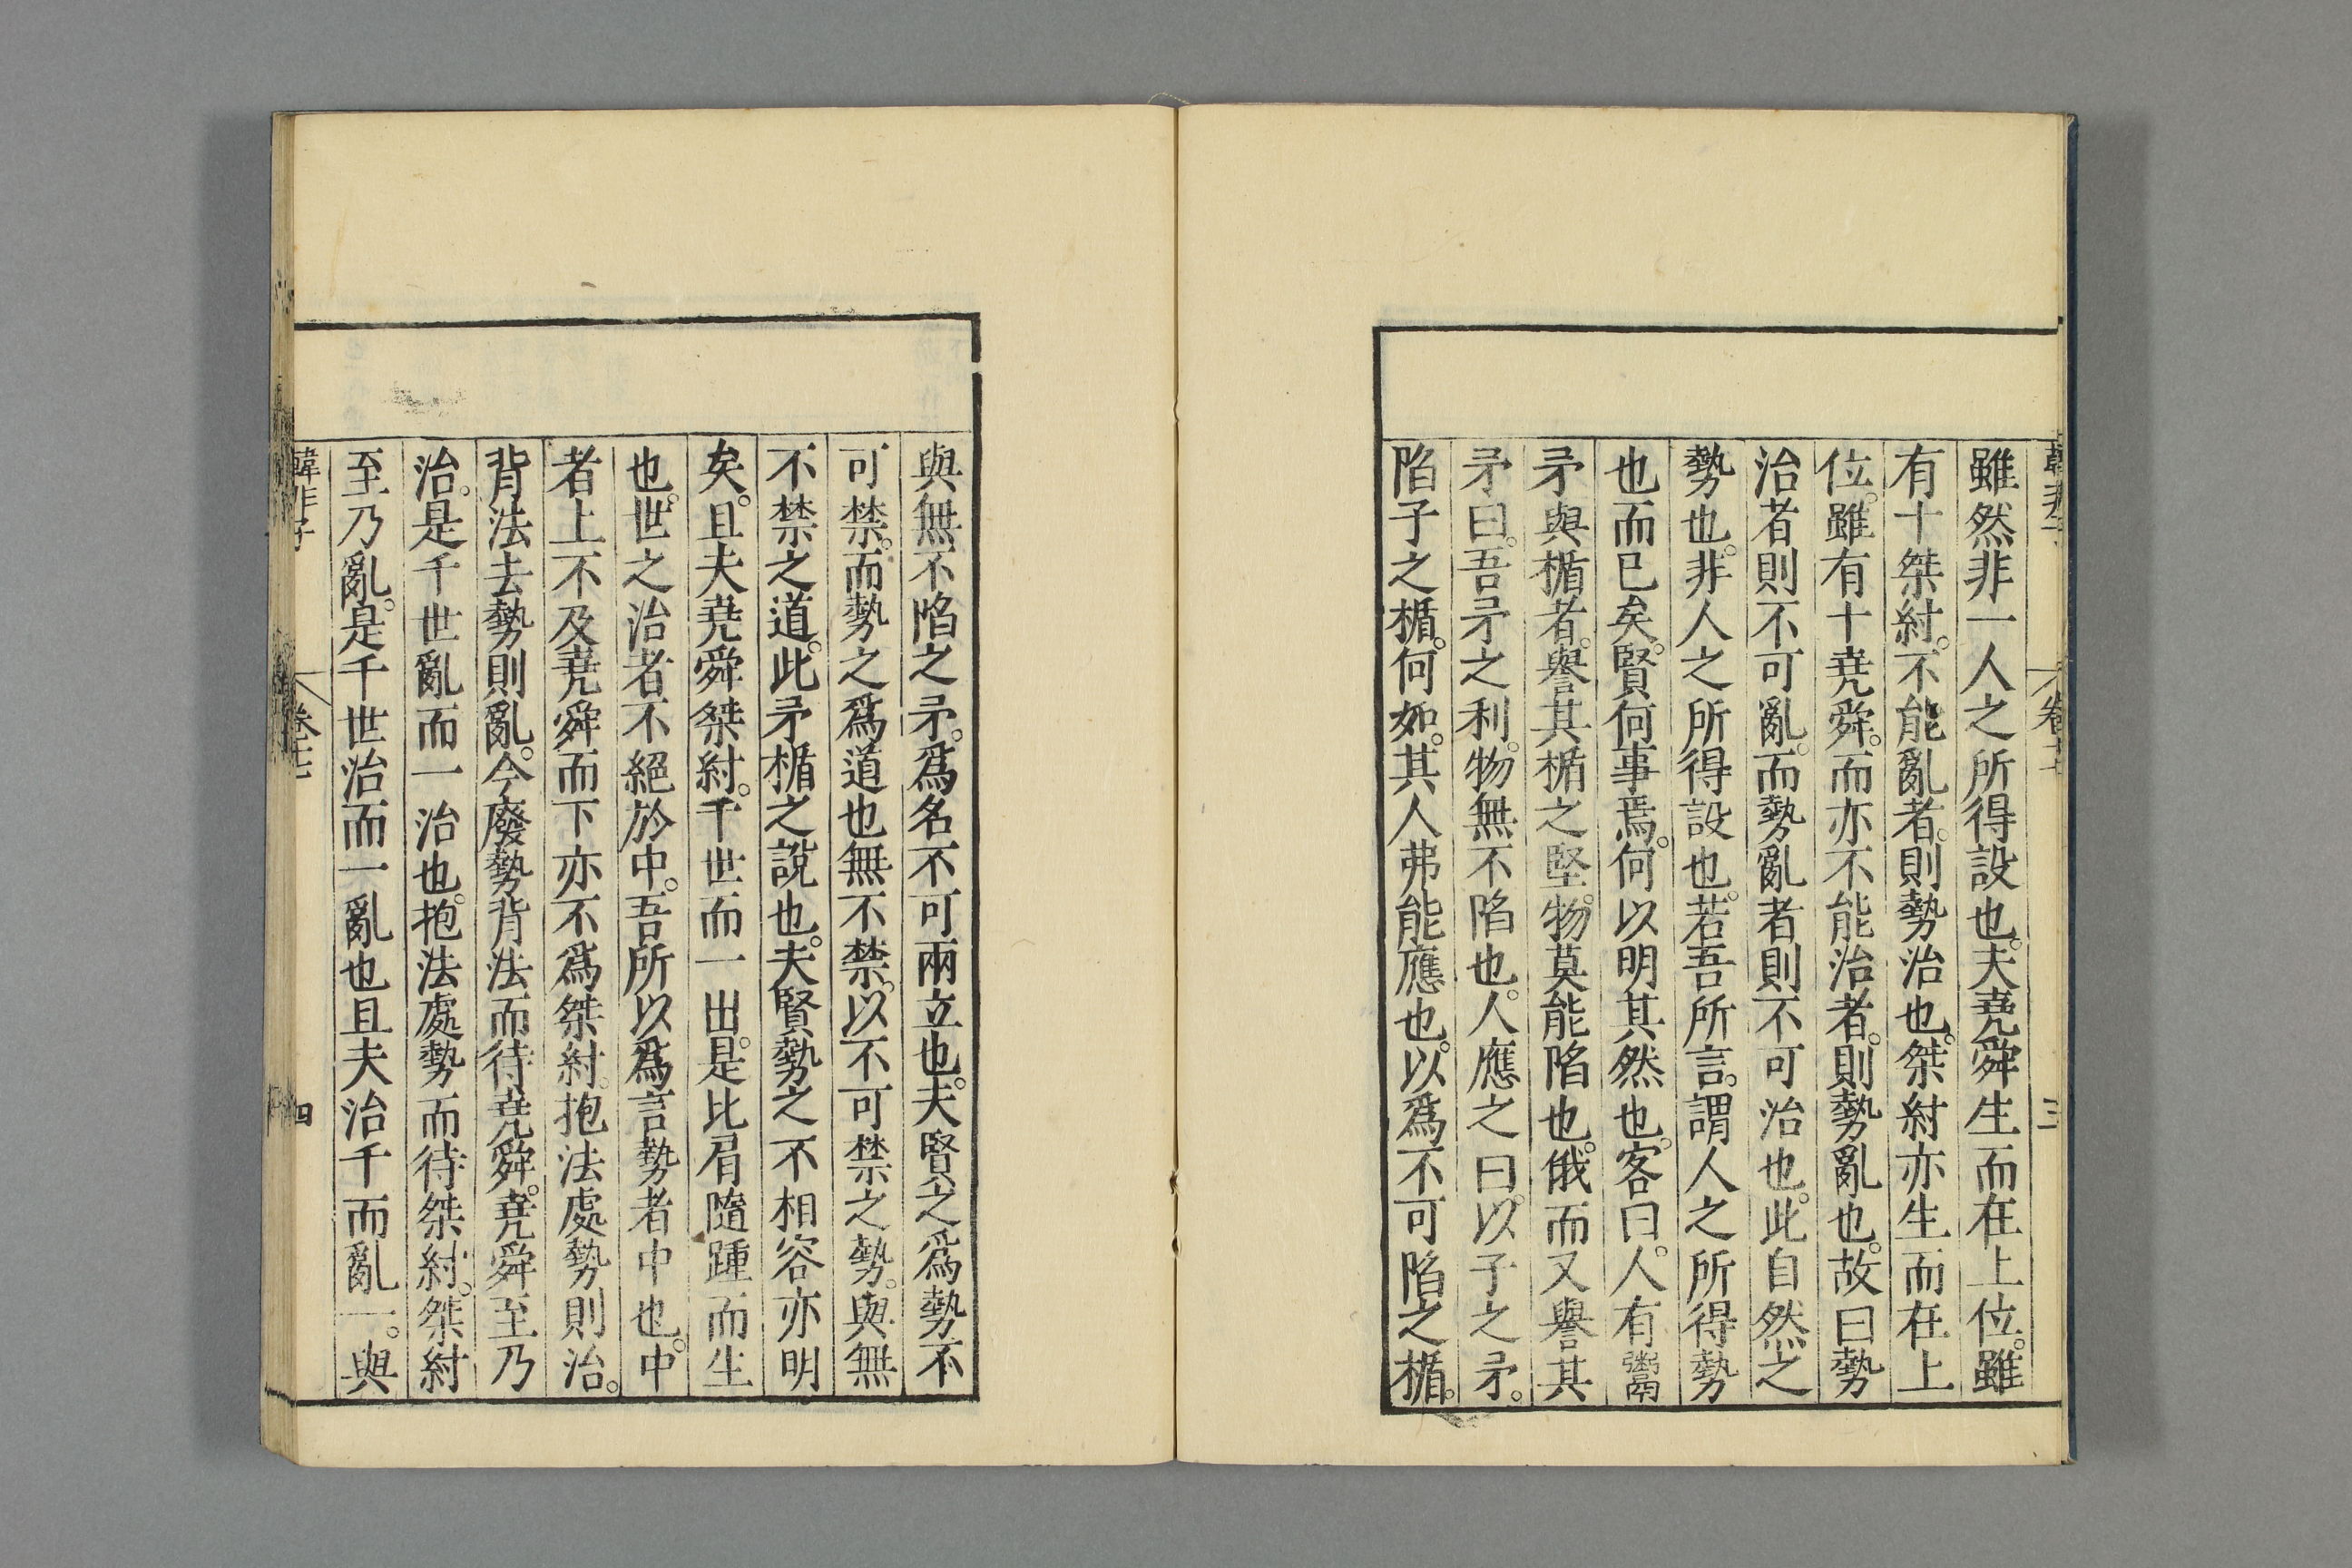 韓非子 卷十七 三
雖然非一人之所得設也。夫堯舜生而在上位。雖
有十桀紂。不能亂者。則勢治也。桀紂亦生而在上
位。雖有十堯舜。而亦不能治者。則勢亂也。故曰勢
治者則不可亂。而勢亂者則不可治也。此自然之
勢也。非人之所得設也。若吾所言。謂人之所得勢
也而已矣。賢何事焉。何以明其然也。客曰。人有鬻
矛與楯者。譽其楯之堅。物莫能陷也。俄而又譽其
矛曰。吾矛之利。物無不陷也。人應之曰。以子之矛。
陷子之楯。何如。其人弗能應也。以爲不可陷之楯。
與無不陷之矛。爲名不可兩立也。夫賢之爲勢不
可禁。而勢之爲道也無不禁。以不可禁之勢。與無
不禁之道。此矛楯之說也。夫賢勢之不相容亦明
矣。且夫堯舜桀紂。千世而一出。是比肩隨踵而生
也。世之治者不絕於中。吾所以爲言勢者中也。中
者上不及堯舜而下亦不爲桀紂。抱法處勢則治。
背法去勢則亂。今廢勢背法而待堯舜。堯舜至乃
治。是千世亂而一治也。抱法處勢而待桀紂。桀紂
至乃亂。是千世治而一亂也且夫治千而亂一。與
韓非子 卷十七 四